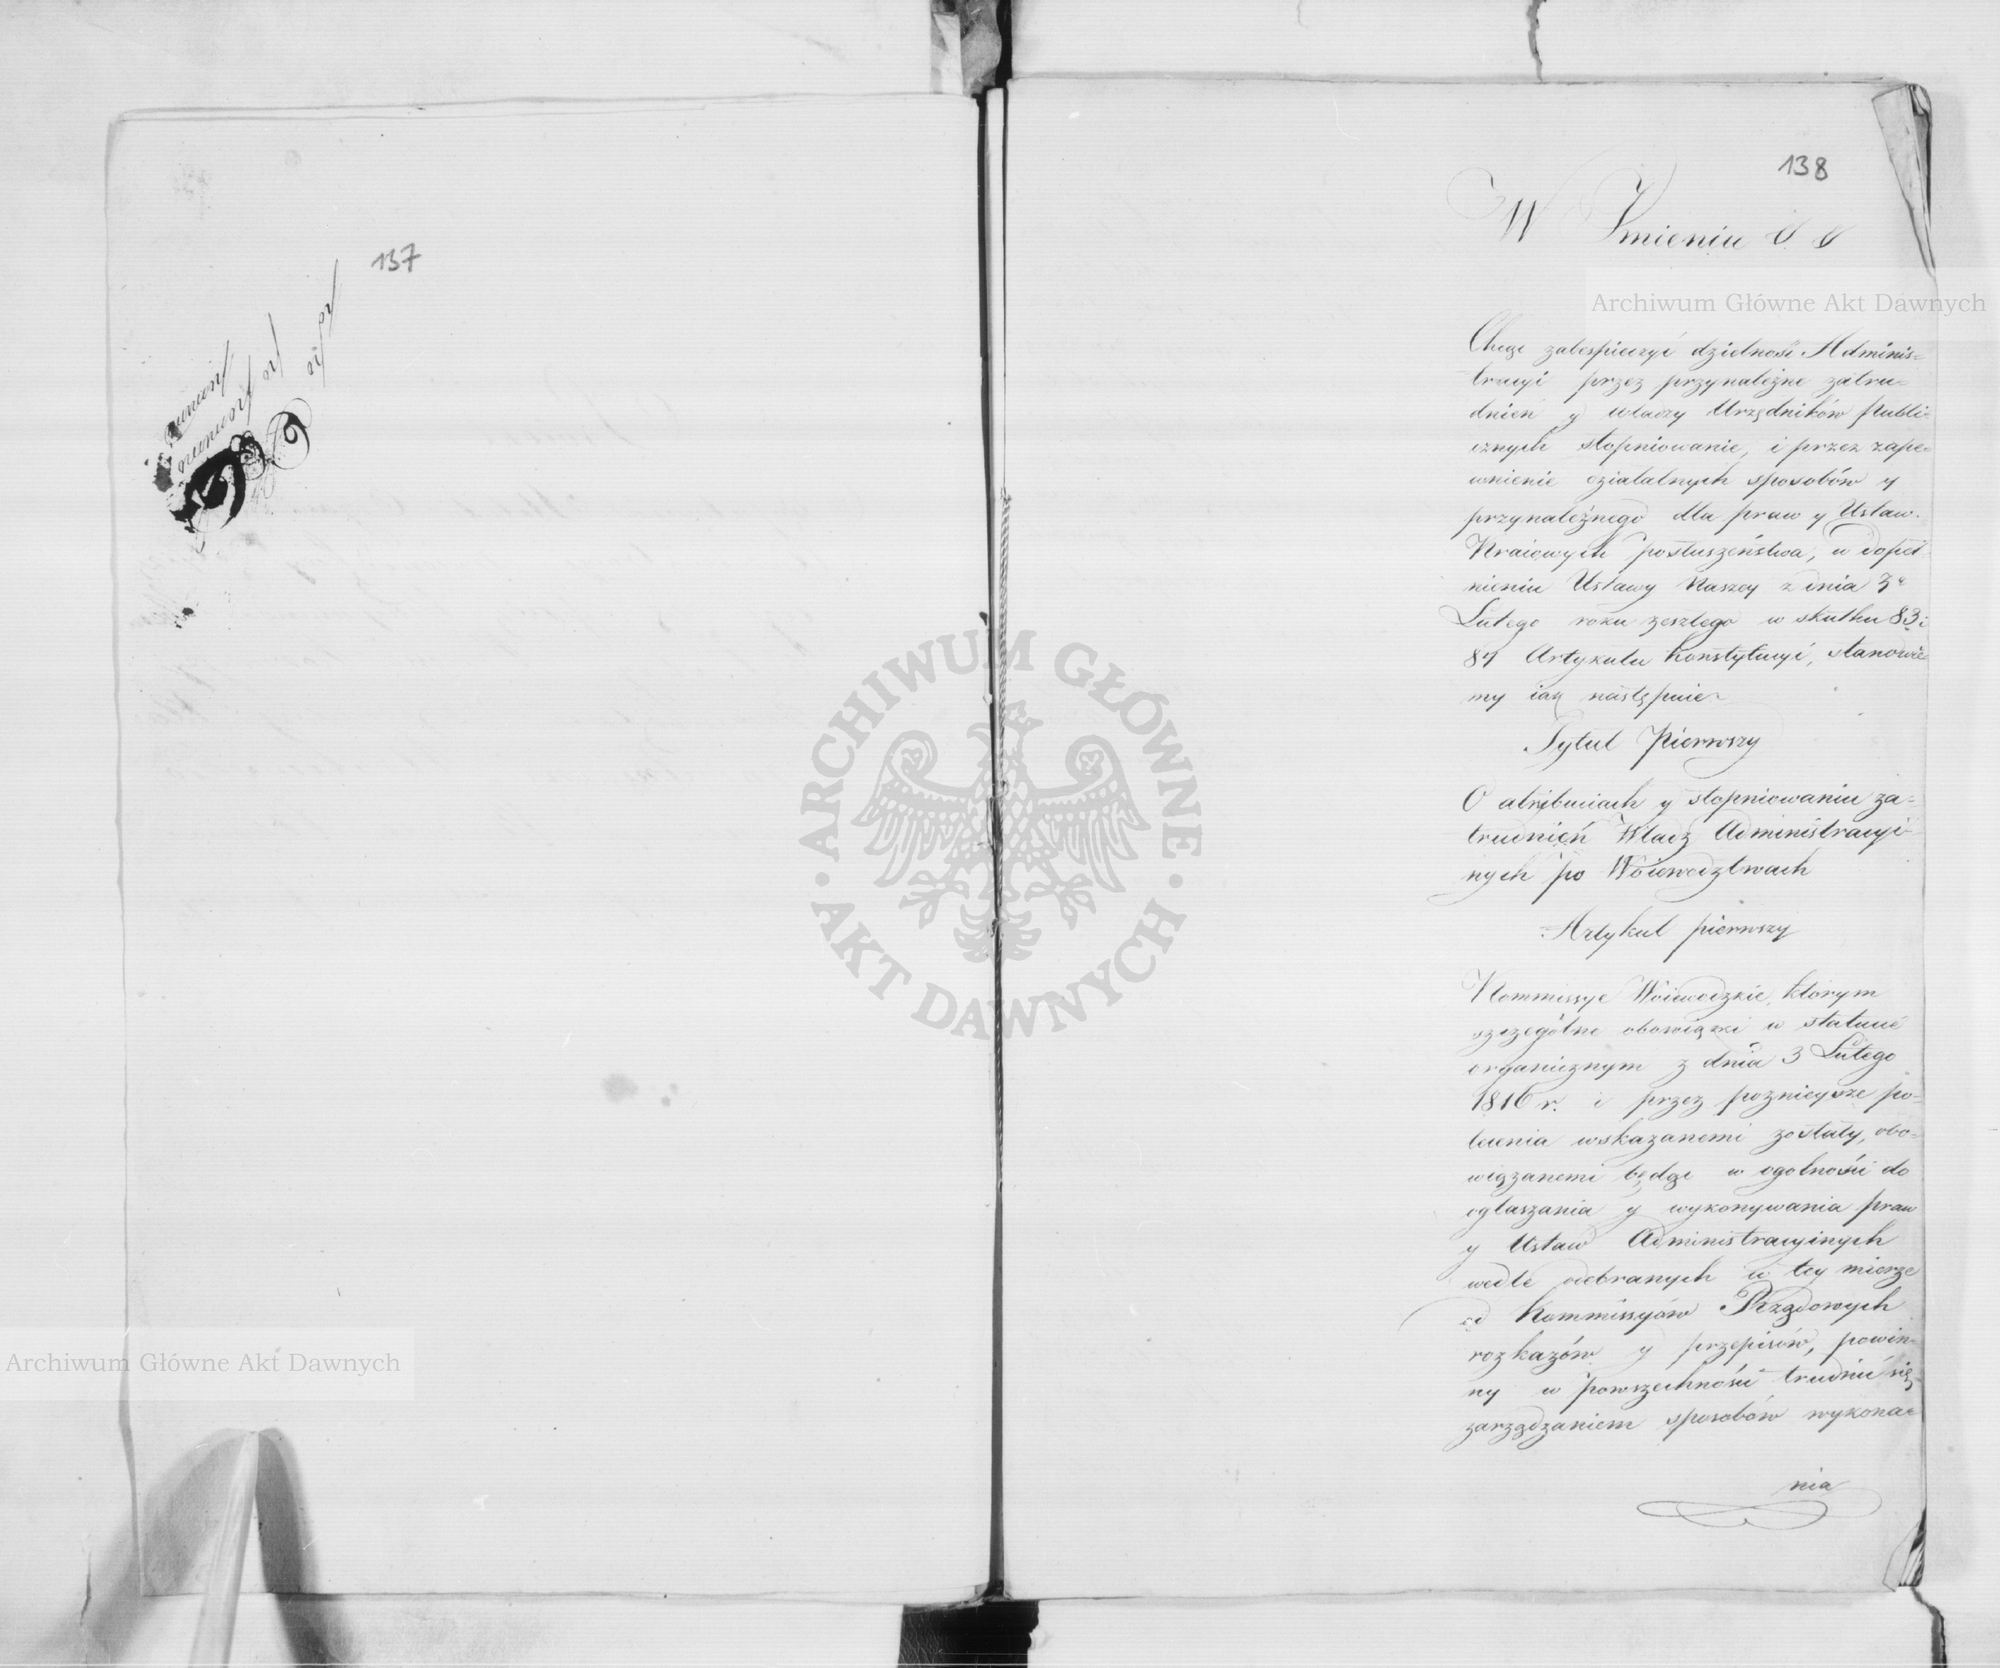 137
138
W Imieniu
Chcąc zabespieczyć dzielność Adminis=
tracyi przez przynależne zatru=
dnień y władzy Urzędników Publi=
cznych stopniowanie, i przez zape=
wnienie działalnych sposobów y
przynależnego dla praw y Ustaw
Kraiowych posłuszeństwa, w dopeł
nieniu Ustawy Naszey z dnia 3º
Lutego roku zeszłego w skutku 83 i
84 Artykułu Konstytucyi, stanowie
my iak następuie
Tytuł Pierwszy
O atribuciach y stopniowaniu za=
trudnień Władz Administracyi
nych po Woiewodztwach
Artykuł pierwszy
Kommissye Woiewodzkie, którym
szczególne obowiązki w statucie
organicznym z dnia 3 Lutego
1816 r. i przez poznieysze po=
lecenia wskazanemi zostały, obo=
wiązanemi będąc w ogolności do
ogłaszania y wykonywania praw
y Ustaw Administracyinych
wedle odebranych w tey mierze
od Kommissyów Rządowych
rozkazów y przepisów, powin=
ny w powszechności trudnić się
zarządzaniem sposobów wykona=
nia
Archiwum Główne Akt Dawnych
Archiwum Główne Akt Dawnych
ARCHIWUM GŁÓWNE
AKT DAWNYCH